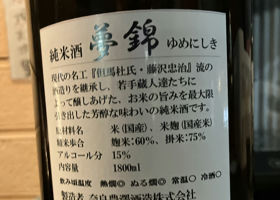 純米酒 夢錦 ゆめにしき
現代の名工『但馬杜氏・藤沢忠治』流の
酒造りを継承し、若手蔵人達たちに
よって醸しあげた、お米の旨みを最大限
引き出した芳醇な味わいの純米酒です。
原材料名 米(国産)、米麹(国産米)
精米歩合 麹米:60%、掛米:75%
アルコール分 15%
内容量 1800ml
飲み頃温度 熱燗◎ ぬる燗◎ 常温○ 冷酒○
製造者 奈良豊澤酒造株式会社